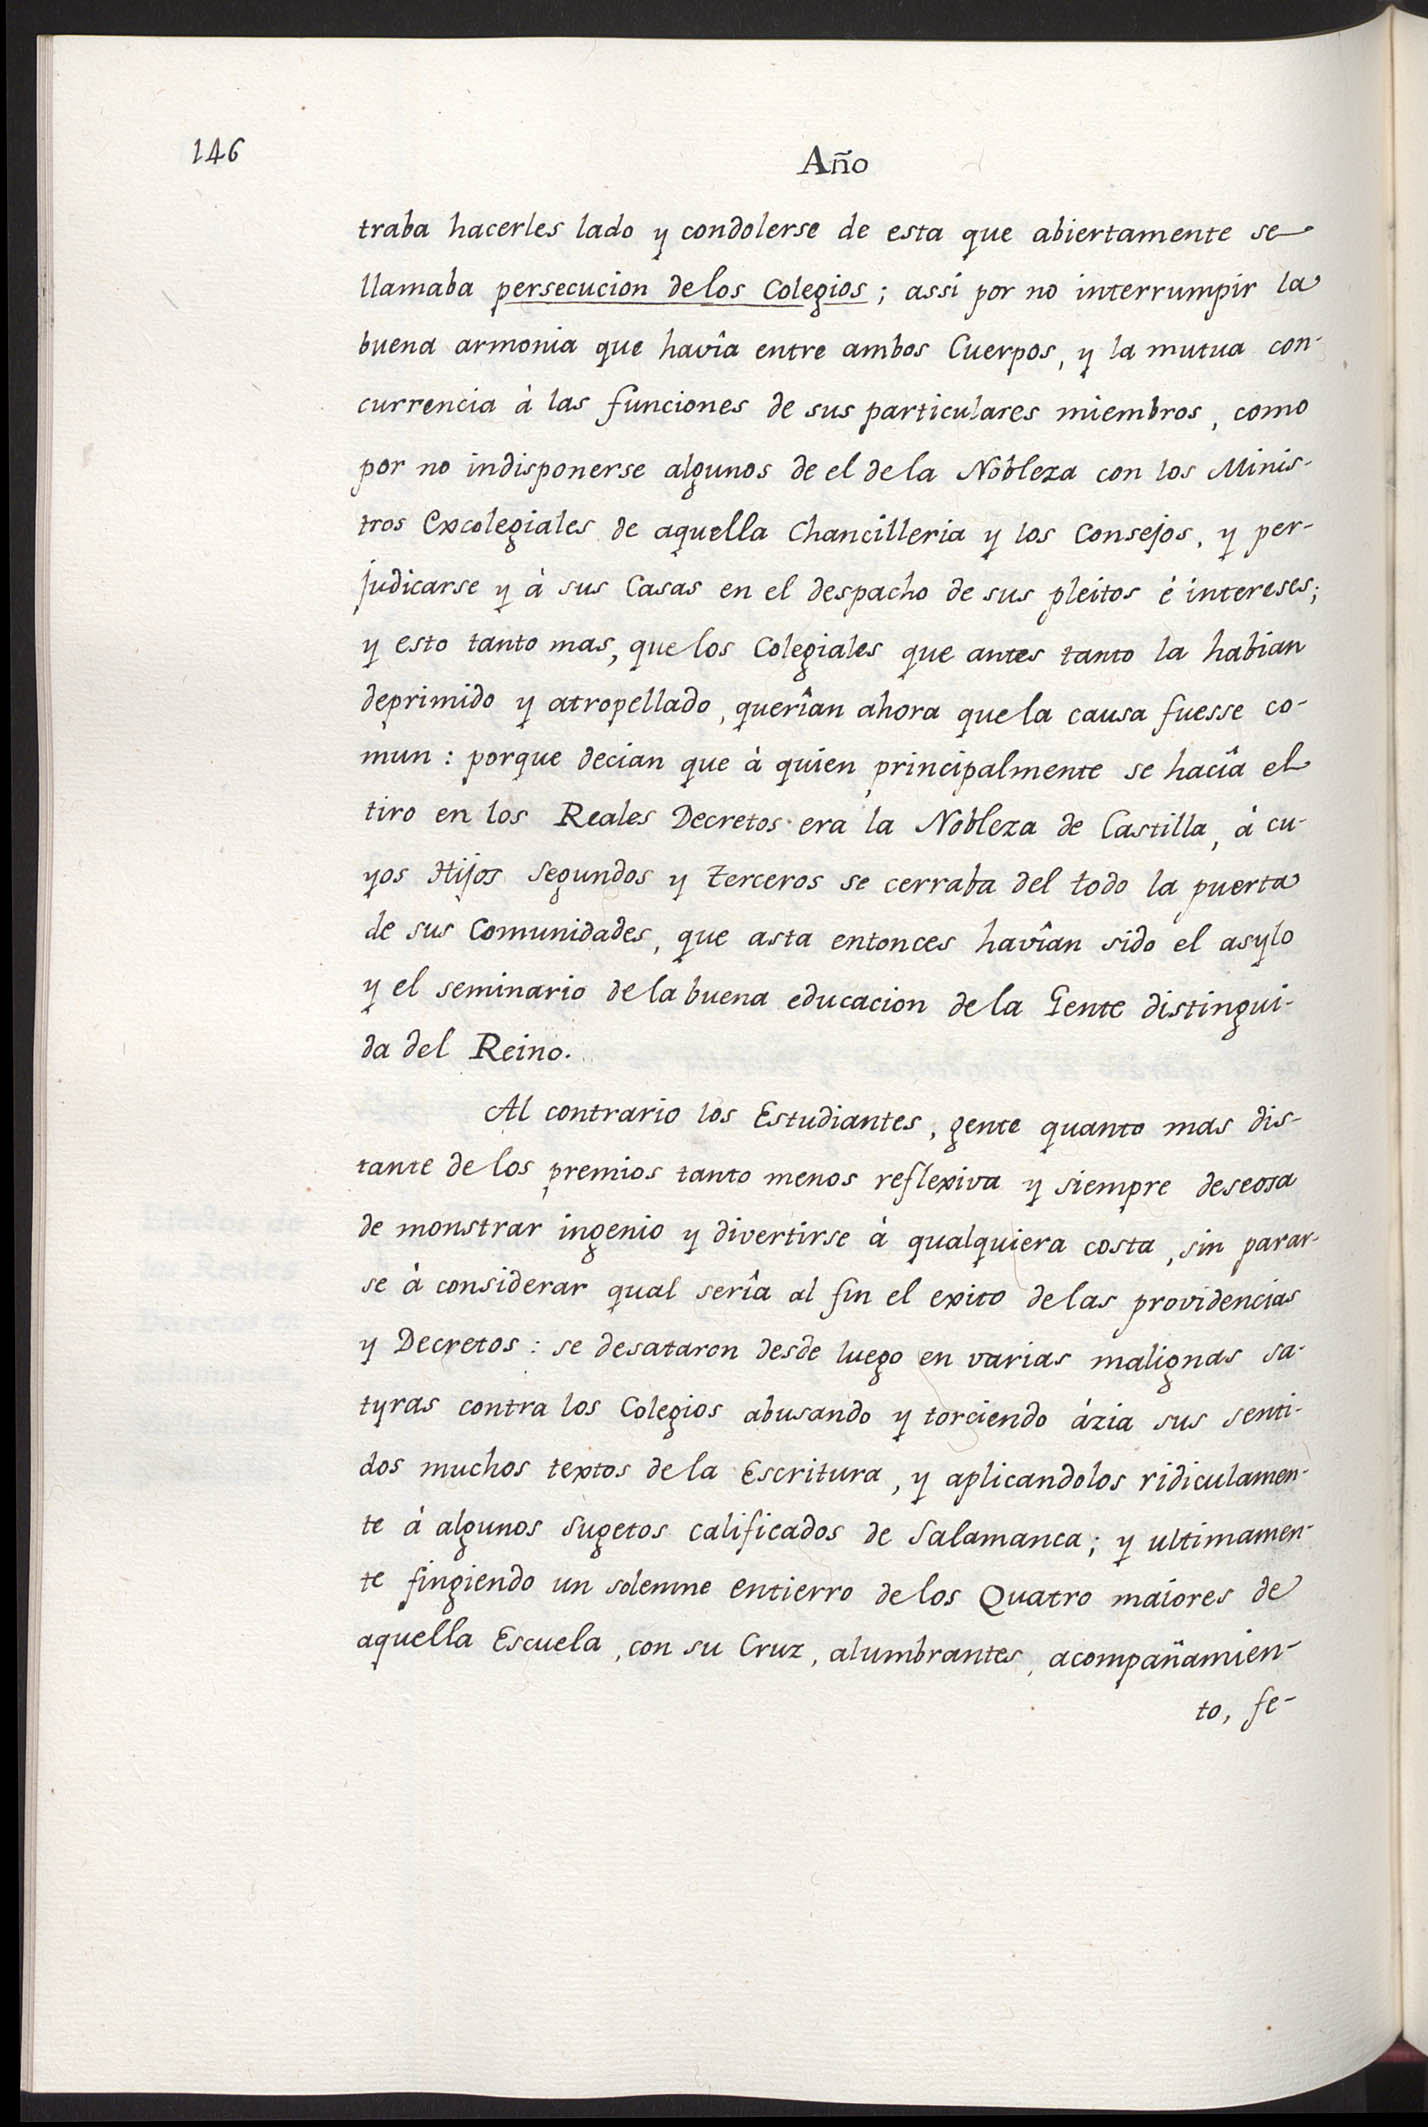 146
Año
traba hacerles lado y condolerse de esta que abiertamente se
llamaba persecucion de los Colegios; assi por no interrumpir la
buena armonia que havîa entre ambos Cuerpos, y la mutua con-
currencia à las funciones de sus particulares miembros, como
por no indisponerse algunos de el de la Nobleza con los Minis-
tros Excolegiales de aquella Chancilleria y los Consejos, y per-
judicarse y à sus Casas en el despacho de sus pleitos é intereses;
y esto tanto mas, que los Colegiales que antes tanto la habian
deprimido y atropellado, querîan ahora que la causa fuesse co-
mun: porque decian que à quien principalmente se hacîa el
tiro en los Reales Decretos era la Nobleza de Castilla, à cu-
yos Hijos segundos y terceros se cerraba del todo la puerta
de sus Comunidades, que asta entonces havîan sido el asylo
y el seminario de la buena educacion de la Gente distingui-
da del Reino.
Al contrario los Estudiantes, gente quanto mas dis-
tante de los premios tanto menos reflexiva y siempre deseosa
de monstrar ingenio y divertirse à qualquiera costa, sin parar-
se à considerar qual serîa al fin el exito de las providencias
y Decretos: se desataron desde luego en varias malignas sa-
tyras contra los Colegios abusando y torciendo ázia sus senti-
dos muchos textos de la Escritura, y aplicandolos ridiculamen-
te à algunos sugetos calificados de Salamanca; y ultimamen-
te fingiendo un solemne entierro de los Quatro maiores de
aquella Escuela, con su Cruz, alumbrantes, acompañamien-
to, fe-